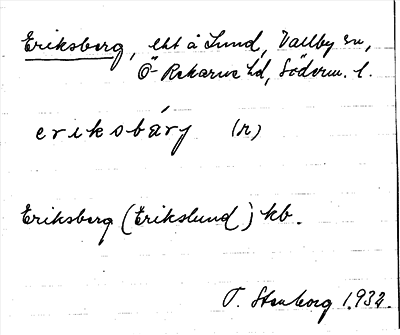 Eriksberg, lht å Lund, Vallby sn,
Ö Rekarne hd, Söderm. l.
eriksbárj (r)
Eriksberg (Erikslund) kb.
T. Stenborg 1932.